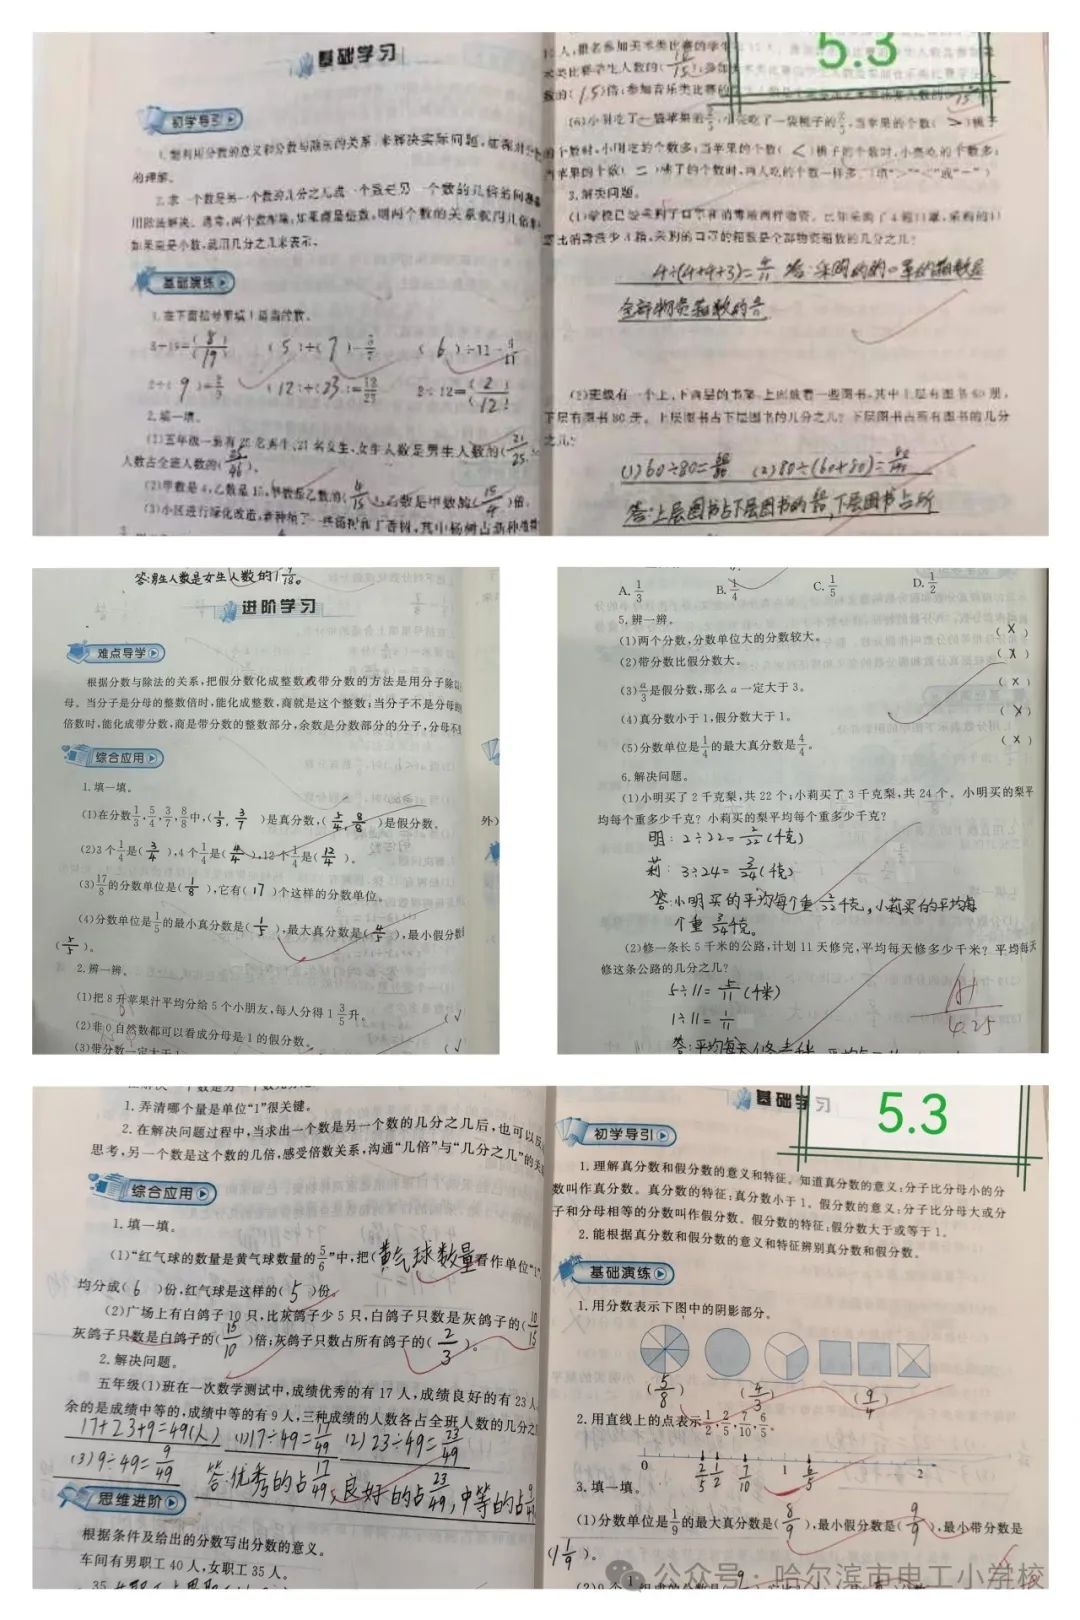 基础学习
初学导引
1.能利用分数的意义和分数与除法的关系,来解决实际问题,
的理解。
2.求一个数是另一个数的几分之几或一个数是另一个数的几倍的问题
用除法解决。通常,两个数相除,如果商是倍数,则两个数的关系就用几倍
如果商是小数,就用几分之几来表示。
基础演练
1.在下面括号里填上适当的数。
8÷19=(8/19) (5)÷(7)=5/7 (6)÷11=
2÷(9)= (12)÷(23)=12/23 2÷12=(2/12)
2.填一填。
(1)五年级一班有25名男生,21名女生,女生人数是男生人数的(21/25),
人数占全班人数的(25/46)。
(2)甲数是4,乙数是15,甲数是乙数的(4/15),乙数是甲数的(15/4)倍。
(3)小区进行绿化改造,新种植了一些杨树和丁香树,其中杨树占新种植
5.3
数的(1.5)倍;参加音乐类比赛的
一袋桃子的 ,当苹果的个数(>)桃子
的个数时,小明吃的个数多;当苹果的个数(<)桃子的个数时,小亮吃的个数多;
当苹果的个数(=)桃子的个数时,两人吃的个数一样多。(填“>”“<”或“=”)
3.解决问题。
(1)学校已经采购了口罩和消毒液两种物资。已知采购了4箱口罩,采购的口
罩比消毒液少3箱,采购的口罩的箱数是全部物资箱数的几分之几?
4÷(4+4+3)=4/11 答:采购的的口罩的箱数是
全部物资箱数的
(2)班级有一个上、下两层的书架,上面放着一些图书,其中上层有图书60册,
下层有图书80册。上层图书占下层图书的几分之几?下层图书占所有图书的几分
之几?
(1)60÷80=60/80 (2)80÷(60+80)=
答:上层图书占下层图书的 ,下层图书占所
答:男生人数是女生人数的
进阶学习
难点导学
根据分数与除法的关系,把假分数化成整数或带分数的方法是用分子除以
母。当分子是分母的整数倍时,能化成整数,商就是这个整数;当分子不是分母的
倍数时,能化成带分数,商是带分数的整数部分,余数是分数部分的分子,分母不
综合应用
1.填一填。
(1)在分数1/3,5/4,3/7,8/8中,(1/3,3/7)是真分数,(5/4,8/8)是假分数。
(2)3个1/4是(3/4),4个1/4是(4/4),12个1/4是(12/4)。
(3)17/8的分数单位是(1/8),它有(17)个这样的分数单位。
(4)分数单位是1/5的最小真分数是(1/5),最大真分数是(4/5),最小假分数
(5/5)。
2.辨一辨。
(1)把8升苹果汁平均分给5个小朋友,每人分得1 3/5升。 (√
(2)非0自然数都可以看成分母是1的假分数。 (√
(3)带分数一定大于1
A.1/3 B.1/4 C.1/5 D.1/2
5.辨一辨。
(1)两个分数,分数单位大的分数较大。 (×)
(2)带分数比假分数大。 (×)
(3)a/3是假分数,那么a一定大于3。 (×)
(4)真分数小于1,假分数大于1。 (×)
(5)分数单位是1/4的最大真分数是4/4。 (×)
6.解决问题。
(1)小明买了2千克梨,共22个;小莉买了3千克梨,共24个。小明买的梨平
均每个重多少千克?小莉买的梨平均每个重多少千克?
明:2÷22=2/22(千克)
莉:3÷24=3/24(千克)
答:小明买的平均每个重2/22千克,小莉买的平均每
个重3/24千克。
(2)修一条长5千米的公路,计划11天修完,平均每天修多少千米?平均每天
修这条公路的几分之几?
5÷11=5/11(千米)
1÷11=1/11
答:平均每天修
4.25
1.弄清哪个量是单位“1”很关键。
2.在解决问题过程中,当求出一个数是另一个数的几分之几后,也可以反
思考,另一个数是这个数的几倍,感受倍数关系,沟通“几倍”与“几分之几”的关
综合应用
1.填一填。
(1)“红气球的数量是黄气球数量的5/6”中,把(黄气球数量看作单位“1”
均分成(6)份,红气球是这样的(5)份。
(2)广场上有白鸽子10只,比灰鸽子少5只,白鸽子只数是灰鸽子的(10/15
灰鸽子只数是白鸽子的(15/10)倍;灰鸽子只数占所有鸽子的(2/3)。
2.解决问题。
五年级(1)班在一次数学测试中,成绩优秀的有17人,成绩良好的有23人
余的是成绩中等的,成绩中等的有9人,三种成绩的人数各占全班人数的几分之
17+23+9=49(人) (1)17÷49=17/49 (2)23÷49=23/49
(3)9÷49=9/49 答:优秀的占17/49,良好的占23/49,中等的占
思维进阶
根据条件及给出的分数写出分数的意义。
车间有男职工40人,女职工35人。
基础学习
5.3
初学导引
1.理解真分数和假分数的意义和特征。知道真分数的意义:分子比分母小的分
数叫作真分数。真分数的特征:真分数小于1。假分数的意义:分子比分母大或分
子和分母相等的分数叫作假分数。假分数的特征:假分数大于或等于1。
2.能根据真分数和假分数的意义和特征辨别真分数和假分数。
基础演练
1.用分数表示下图中的阴影部分。
(5/8) (4/3) (9/4)
2.用直线上的点表示1/2,2/5,7/10,6/5。
0 1 2
2/5 1/2 7/10 6/5
3.填一填。
(1)分数单位是1/9的最大真分数是(8/9),最小假分数是(9/9),最小带分数是
(1 1/9)。
公众号·哈尔滨市电工小学校